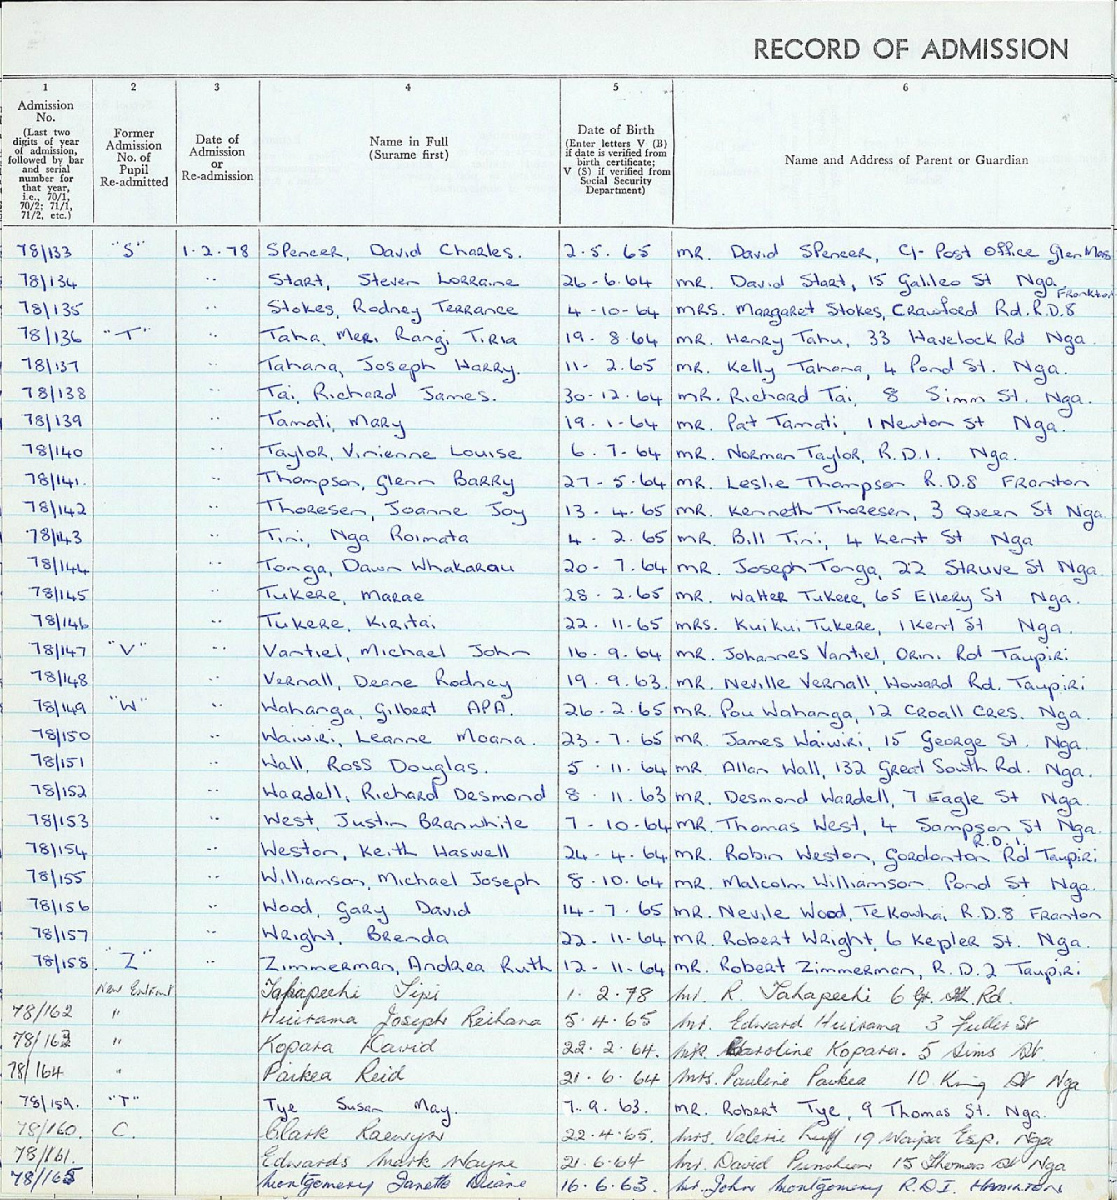 RECORD OF ADMISSION
1 2 3 4 5 6
Admission No. (Last two digits of year of admission, followed by bar and serial number for that year, i.e., 70/1, 70/2; 71/1, 71/2, etc.)
Former Admission No. of Pupil Re-admitted
Date of Admission or Re-admission
Name in Full (Surame first)
Date of Birth (Enter letters V (B) if date is verified from birth certificate; V (S) if verified from Social Security Department)
Name and Address of Parent or Guardian
78/133 "S" 1.2.78 Spencer, David Charles. 2.5.65 MR. David Spencer, C/- Post Office Glen Mas
78/134 " Start, Steven Lorraine 26-6.64 MR. David Start, 15 Galileo St Nga
78/135 " Stokes, Rodney Terrance 4-10-64 MRS. Margaret Stokes, Crawford Rd. R.D.8 Frankton
78/136 "T" " Taha, Meri Rangi Tiria 19.8.64 MR. Henry Tahu, 33 Havelock Rd Nga.
78/137 " Tahana, Joseph Harry. 11-2.65 MR. Kelly Tahana, 4 Pond St. Nga.
78/138 " Tai, Richard James. 30-12.64 MR. Richard Tai, 8 Simm St. Nga.
78/139 " Tamati, Mary 19.1-64 MR. Pat Tamati, 1 Newton St Nga.
78/140 " Taylor, Vivienne Louise 6.7-64 MR. Norman Taylor, R.D.1. Nga.
78/141. " Thompson, Glenn Barry 27-5.64 MR. Leslie Thompson R.D.8 Franton
78/142 " Thoresen, Joanne Joy 13-4.65 MR. Kenneth Thoresen, 3 Queen St Nga.
78/143 " Tini, Nga Roimata 4-2.65 MR. Bill Tini, 4 Kent St Nga
78/144 " Tonga, Dawn Whakarau 20-7.64 MR. Joseph Tonga, 22 Struve St Nga.
78/145 " Tukere, Marae 28.2.65 MR. Walter Tukere, 65 Ellery St Nga.
78/146 " Tukere, Kiritai 22.11-65 MRS. Kuikui Tukere, 1 Kent St Nga.
78/147 "V" " Vantiel, Michael John 16.9.64 MR. Johannes Vantiel, Orini Rd Taupiri
78/148 " Vernall, Deane Rodney 19.9.63. MR. Neville Vernall, Howard Rd. Taupiri
78/149 "W" " Wahanga, Gilbert APA. 26-2.65 MR. Pou Wahanga, 12 Croall Cres. Nga.
78/150 " Waiwiri, Leanne Moana. 23.7.65 MR. James Waiwiri, 15 George St. Nga.
78/151 " Wall, Ross Douglas. 5.11.64 MR. Allan Wall, 132 Great South Rd. Nga.
78/152 " Wardell, Richard Desmond 8.11.63 MR. Desmond Wardell, 7 Eagle St Nga.
78/153 " West, Justin Branwhite 7-10-64 MR. Thomas West, 4 Sampson St Nga.
78/154 " Weston, Keith Haswell 24-4.64 MR. Robin Weston, Gordonton Rd R.D.1. Taupiri
78/155 " Williamson, Michael Joseph 8-10.64 MR. Malcolm Williamson. Pond St Nga.
78/156 " Wood, Gary David 14-7.65 MR. Nevile Wood, Te Kowhai R.D.8 Franton
78/157 " Wright, Brenda 22.11-64 MR. Robert Wright, 6 Kepler St. Nga.
78/158. "Z" " Zimmerman, Andrea Ruth 12-11-64 MR. Robert Zimmerman, R.D.2 Taupiri
New Entrant Tahapeehi Tipi 1.2.78 Mr. R. Tahapeehi 6 Gt. Sth Rd.
78/162 " Huirama Joseph Reihana 5.4.65 Mr. Edward Huirama 3 Fuller St
78/163 " Kopara David 22.2.64. Mrs. Caroline Kopara. 5 Sims St.
78/164 " Paekea Reid 21.6.64 Mrs. Pauline Paekea 10 King St Nga
78/159. "T" Tye Susan May. 7.9.63. MR. Robert Tye, 9 Thomas St. Nga.
78/160. C. Clark Raewyn 22.4.65. Mrs. Valerie 19 Waipa Esp. Nga
78/161. Edwards Mark Wayne 21.6.64 Mr. David 15 Thomas St Nga
78/165 Montgomery Janette Diane 16.6.63. Mr. John Montgomery R.D.1. Hamilton